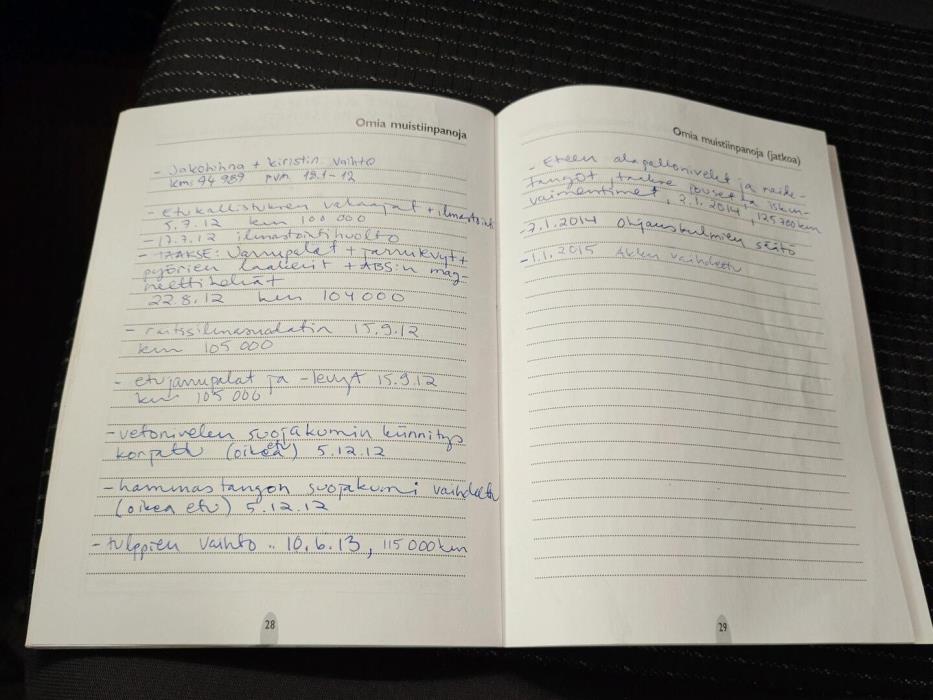 Omia muistiinpanoja
- Jakohihna + kiristin vaihto
km: 94 989 pvm. 18.1-12
- Etukallistuksen vakaajat + ilmastointi
5.7.12 km 100 000
- 17.7.12 ilmastointihuolto
- TAAKSE: Jarrupalat + jarrulevyt +
pyörien laakerit + ABS:n mag-
neettikehät
22.8.12 km 104000
- raitisilmasuodatin 15.9.12
km 105 000
- etujarrupalat ja -levyt 15.9.12
km 105 000
- vetonivelen suojakumin kiinnitys
korjattu (oikea etu) 5.12.12
- hammastangon suojakumi vaihdettu
(oikea etu) 5.12.12
- tulppien vaihto .. 10.6.13, 115 000 km
28
Omia muistiinpanoja (jatkoa)
- Eteen alapallonivelet ja raide-
tangot, taakse jouset ja iskun-
vaimentimet, 2.1.2014, 125 700 km
- 7.1.2014 Ohjauskulmien säätö
- 1.1.2015 Akku vaihdettu
29